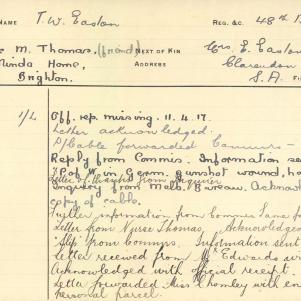 NAME T. W. Easton REG. &C. 48th B
M. Thomas, (friend) NEXT OF KIN Mrs. E. Easton
Minda Home, ADDRESS Clarendon
Brighton. S.A.
1/L Off. rep. missing. 11.4.17.
Letter acknowledged.
Cable forwarded Commrs -
Reply from Commis. Information se
P of W in Germ. gunshot wound, ha
Letter of thanks from
Inquiry from Melb. Bureau. Ackna
copy of cable.
Further information from Commr Same f
Letter from Nurse Thomas Acknowledged
Slip from Commrs. Information sent
Letter received from Mr Edwards wi
Acknowledged with official receipt.
Letter forwarded Miss Chomley with en
personal parcel.